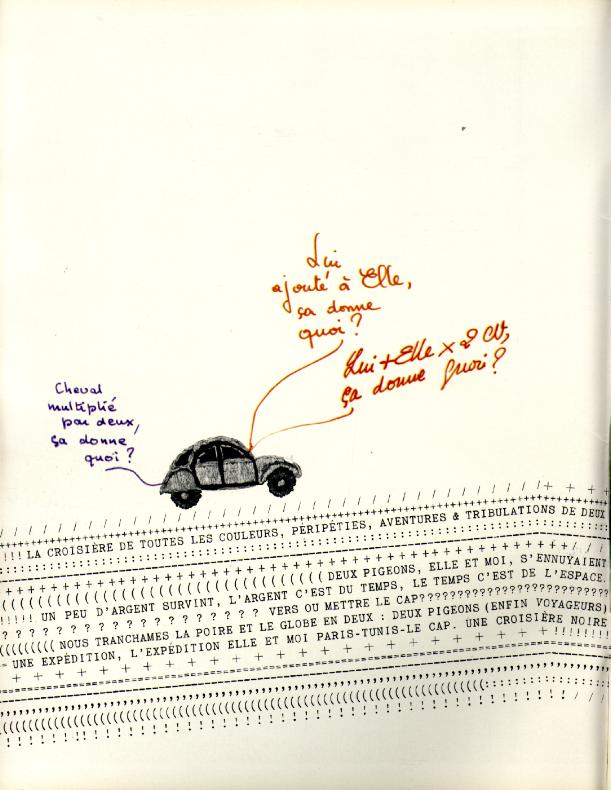 Lui
ajouté à Elle,
ça donne
quoi ?
Lui + Elle x 2 CV,
ça donne quoi ?
Cheval
multiplié
par deux,
ça donne
quoi ?
!!! LA CROISIÈRE DE TOUTES LES COULEURS, PÉRIPÉTIES, AVENTURES & TRIBULATIONS DE DEUX
DEUX PIGEONS, ELLE ET MOI, S'ENNUYAIENT
!!!!! UN PEU D'ARGENT SURVINT, L'ARGENT C'EST DU TEMPS, LE TEMPS C'EST DE L'ESPACE.
? ? ? ? ? ? ? ? ? ? ? ? ? ? ? ? ? ? VERS OU METTRE LE CAP???????????????????????????
((((((((( NOUS TRANCHAMES LA POIRE ET LE GLOBE EN DEUX : DEUX PIGEONS (ENFIN VOYAGEURS)
= UNE EXPÉDITION, L'EXPÉDITION ELLE ET MOI PARIS-TUNIS-LE CAP. UNE CROISIÈRE NOIRE